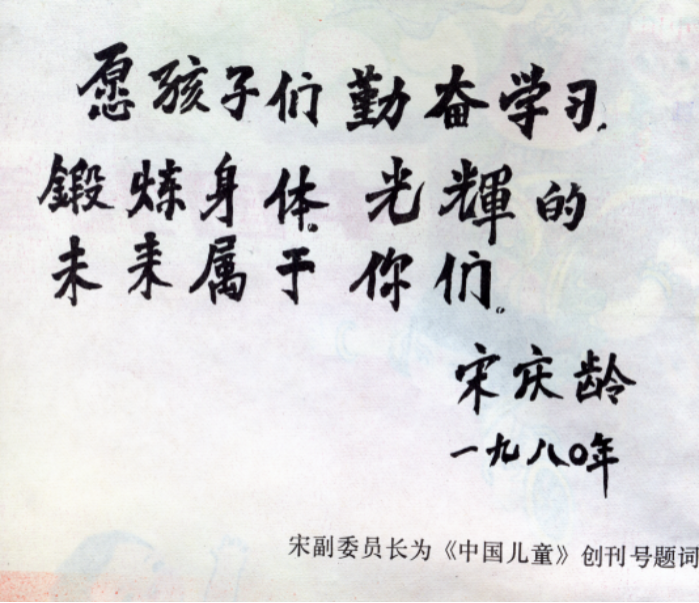 愿孩子们勤奋学习,
鍛炼身体,光輝的
未来属于你们。
宋庆龄
一九八〇年
宋副委员长为《中国儿童》创刊号题词